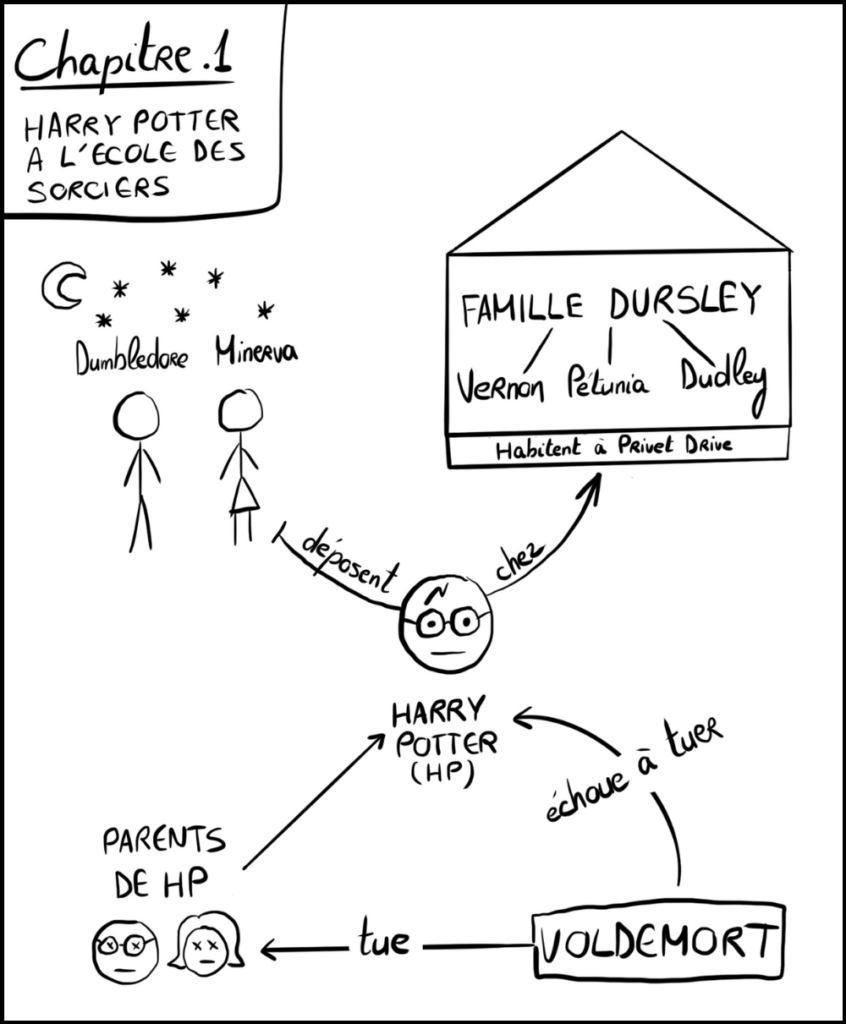 Chapitre.1
HARRY POTTER
A L'ECOLE DES
SORCIERS
Dumbledore Minerva
FAMILLE DURSLEY
Vernon Pétunia Dudley
Habitent à Privet Drive
déposent
chez
HARRY
POTTER
(HP)
échoue à tuer
PARENTS
DE HP
tue
VOLDEMORT